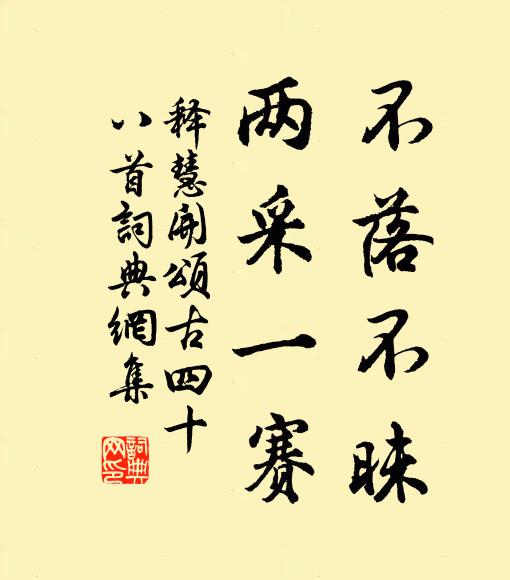 不落不昧
两采一赛
释慧開頌古四十
八首詞典網集
詞典
网印